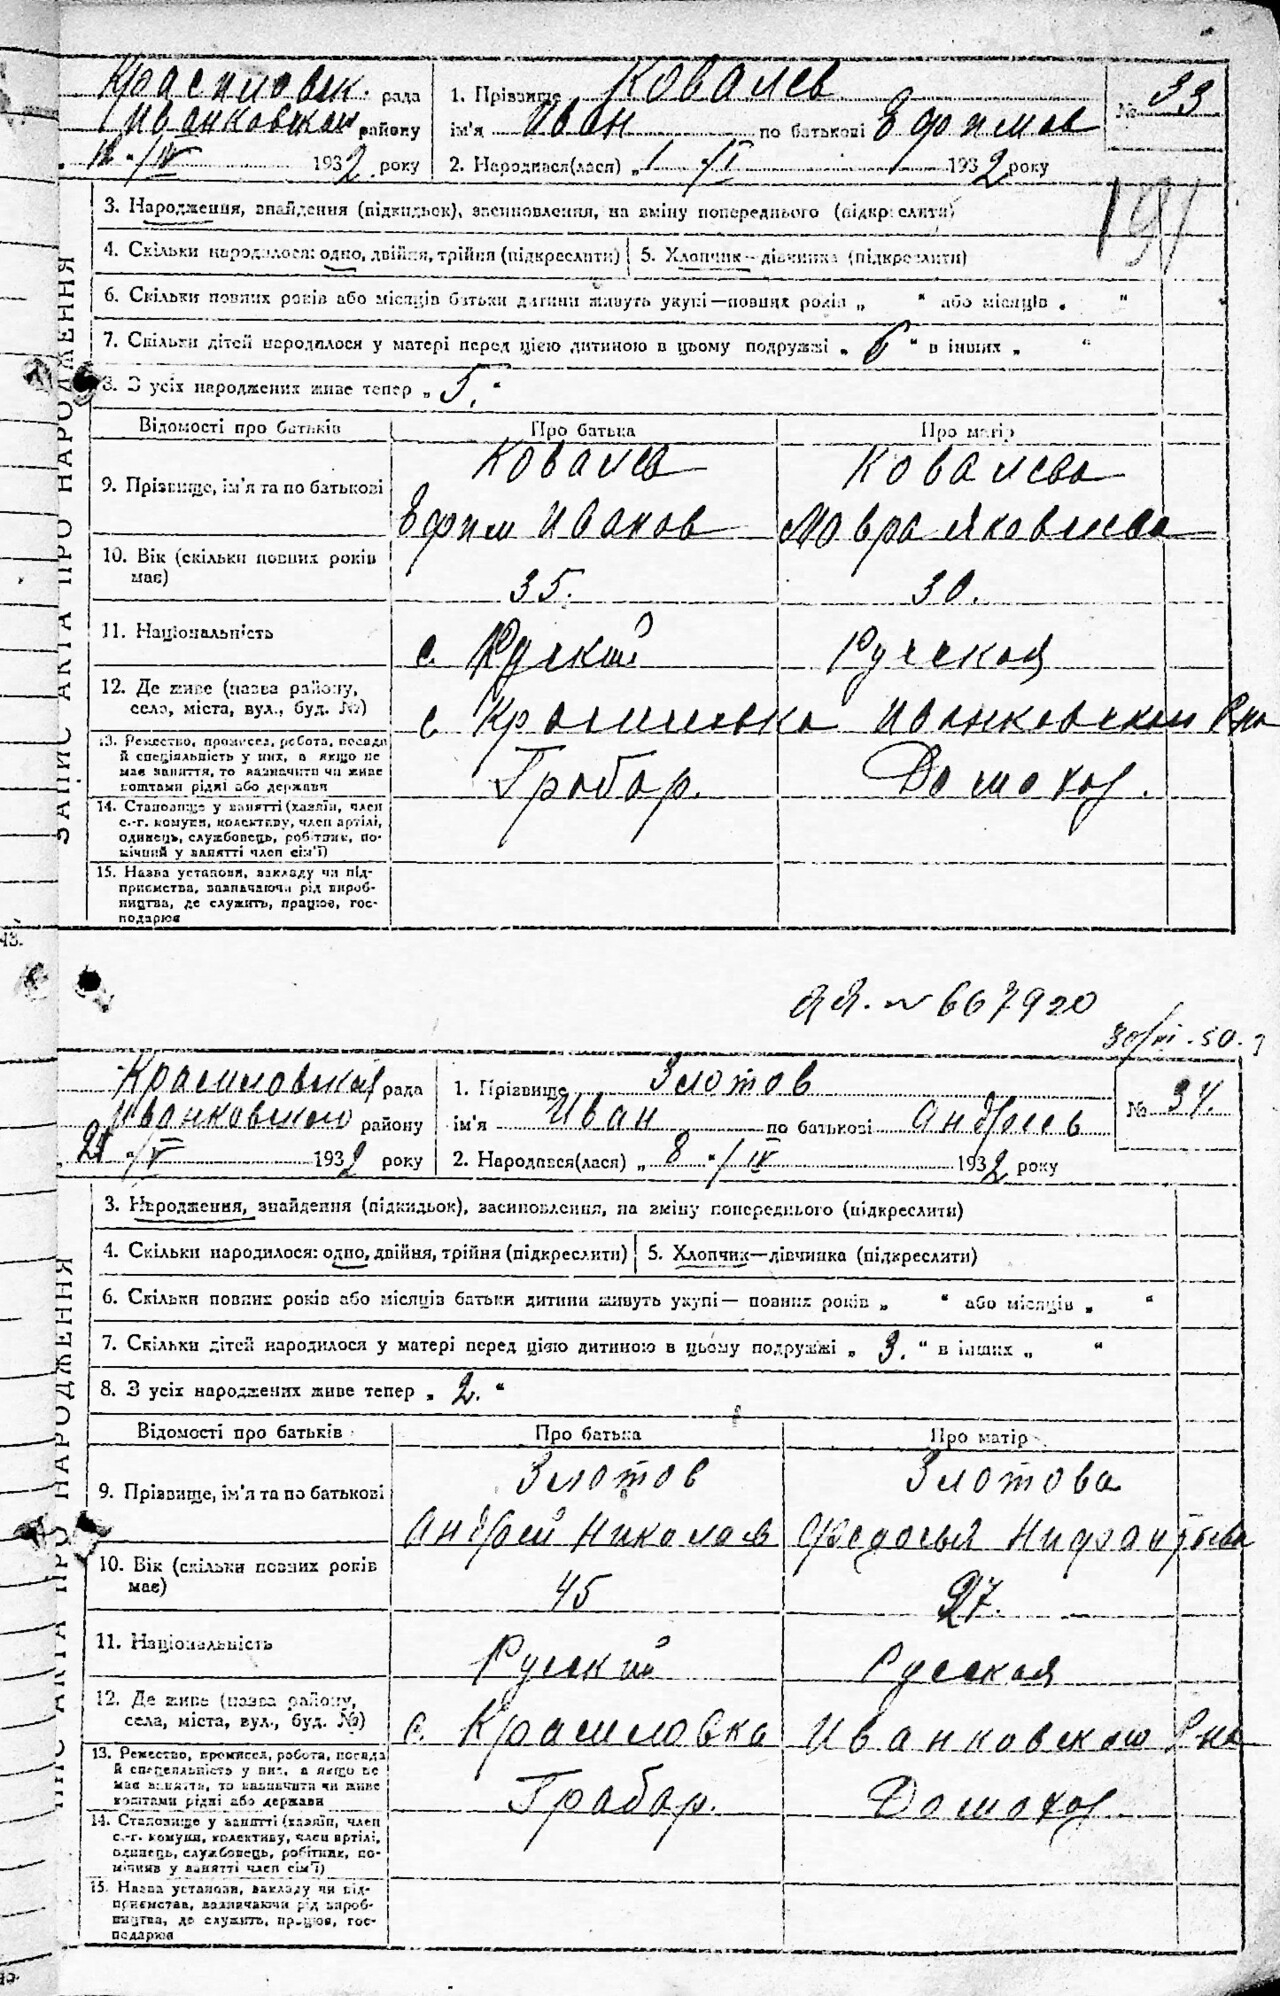 Красиловск. рада
Иванковском району
193 2 року
1. Прізвище Ковалев
ім'я Иван по батькові Ефимов
2. Народився(лася) „ 1 " /I 193 2 року
№ 33
191
ЗАПИС АКТА ПРО НАРОДЖЕННЯ
3. Народження, знайдення (підкидьок), засиновлення, на зміну попереднього (підкреслити)
4. Скільки народилося: одно, двійня, трійня (підкреслити) 5. Хлопчик—дівчинка (підкреслити)
6. Скільки повних років або місяців батьки дитини живуть укупі—повних років „ " або місяців „ "
7. Скільки дітей народилося у матері перед цією дитиною в цьому подружжі „ 6 " в інших „ "
8. З усіх народжених живе тепер „ 5. "
Відомості про батьків Про батька Про матір
9. Прізвище, ім'я та по батькові
Ковалев Ковалева
Ефим Иванов Мавра Яковлева
10. Вік (скільки повних років має)
35. 30.
11. Національність
с. Руский Русская
12. Де живе (назва району, села, міста, вул., буд. №)
с Красиловка Иванковском Р-на
13. Ремество, промисел, робота, посада
й спеціяльність у них, а якщо не
має заняття, то зазначити чи живе
коштами рідні або держави
Грабар. Домохоз.
14. Становище у занятті (хазяїн, член
с.-г. комуни, колективу, член артілі,
одинець, службовець, робітник, по-
мічний у занятті член сім'ї)
15. Назва установи, закладу чи під-
приємства, зазначаючи рід вироб-
ництва, де служить, працює, гос-
подарює
ЯЯ. № 667920
30/VI - 50.
Красиловская рада
Иванковского району
/V 193 2 року
1. Прізвище Злотов
ім'я Иван по батькові Андреев
2. Народився(лася) „ 8 " /IV 193 2 року
№ 34.
ЗАПИС АКТА ПРО НАРОДЖЕННЯ
3. Народження, знайдення (підкидьок), засиновлення, на зміну попереднього (підкреслити)
4. Скільки народилося: одно, двійня, трійня (підкреслити) 5. Хлопчик—дівчинка (підкреслити)
6. Скільки повних років або місяців батьки дитини живуть укупі— повних років „ " або місяців „ "
7. Скільки дітей народилося у матері перед цією дитиною в цьому подружжі „ 3. " в інших „ "
8. З усіх народжених живе тепер „ 2. "
Відомості про батьків Про батька Про матір
9. Прізвище, ім'я та по батькові
Злотов Злотова
Андрей Николаев Федосья
10. Вік (скільки повних років має)
45 27.
11. Національність
Руский Русская
12. Де живе (назва району, села, міста, вул., буд. №)
с. Красиловка Иванковского Р-на
13. Ремество, промисел, робота, посада
й спеціяльність у них, а якщо не
має заняття, то зазначити чи живе
коштами рідні або держави
Грабар. Домохоз.
14. Становище у занятті (хазяїн, член
с.-г. комуни, колективу, член артілі,
одинець, службовець, робітник, по-
мічний у занятті член сім'ї)
15. Назва установи, закладу чи під-
приємства, зазначаючи рід вироб-
ництва, де служить, працює, гос-
подарює